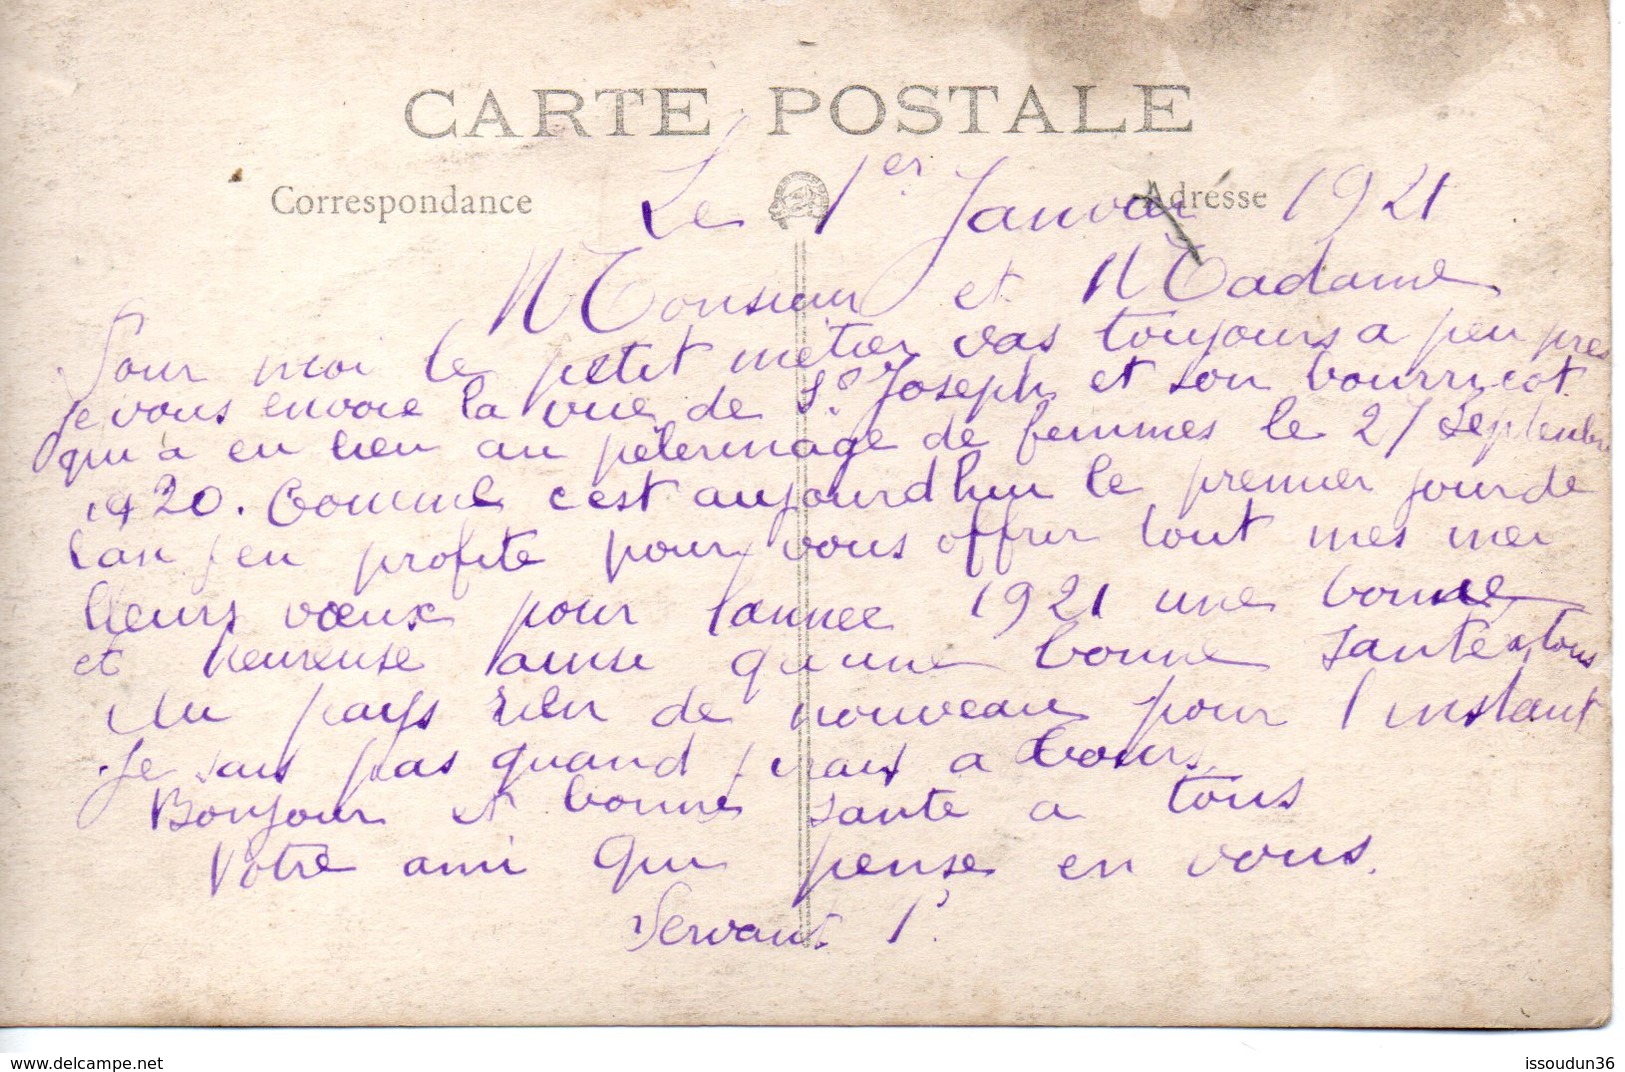 CARTE POSTALE
Correspondance
Adresse
Le 1er Janvier 1921
Monsieur et Madame
Pour moi le petit métier vas toujours a peu pres
je vous envoie la vue de St Joseph et son bourricot
qui a eu lieu au pèlerinage de femmes le 21 Septembre
1920. Comme c'est aujourd'hui le premier jour de
l'an j'en profite pour vous offrir tout mes mei
lleurs voeux pour lannee 1921 une bonne
et heureuse ainsi qu'une bonne sante a tous
Au pays rien de nouveau pour l'instant
Je sais pas quand jirais a Tours
Bonjour et bonne sante a tous
Votre ami qui pense en vous.
Servant P.
www.delcampe.net
issoudun36